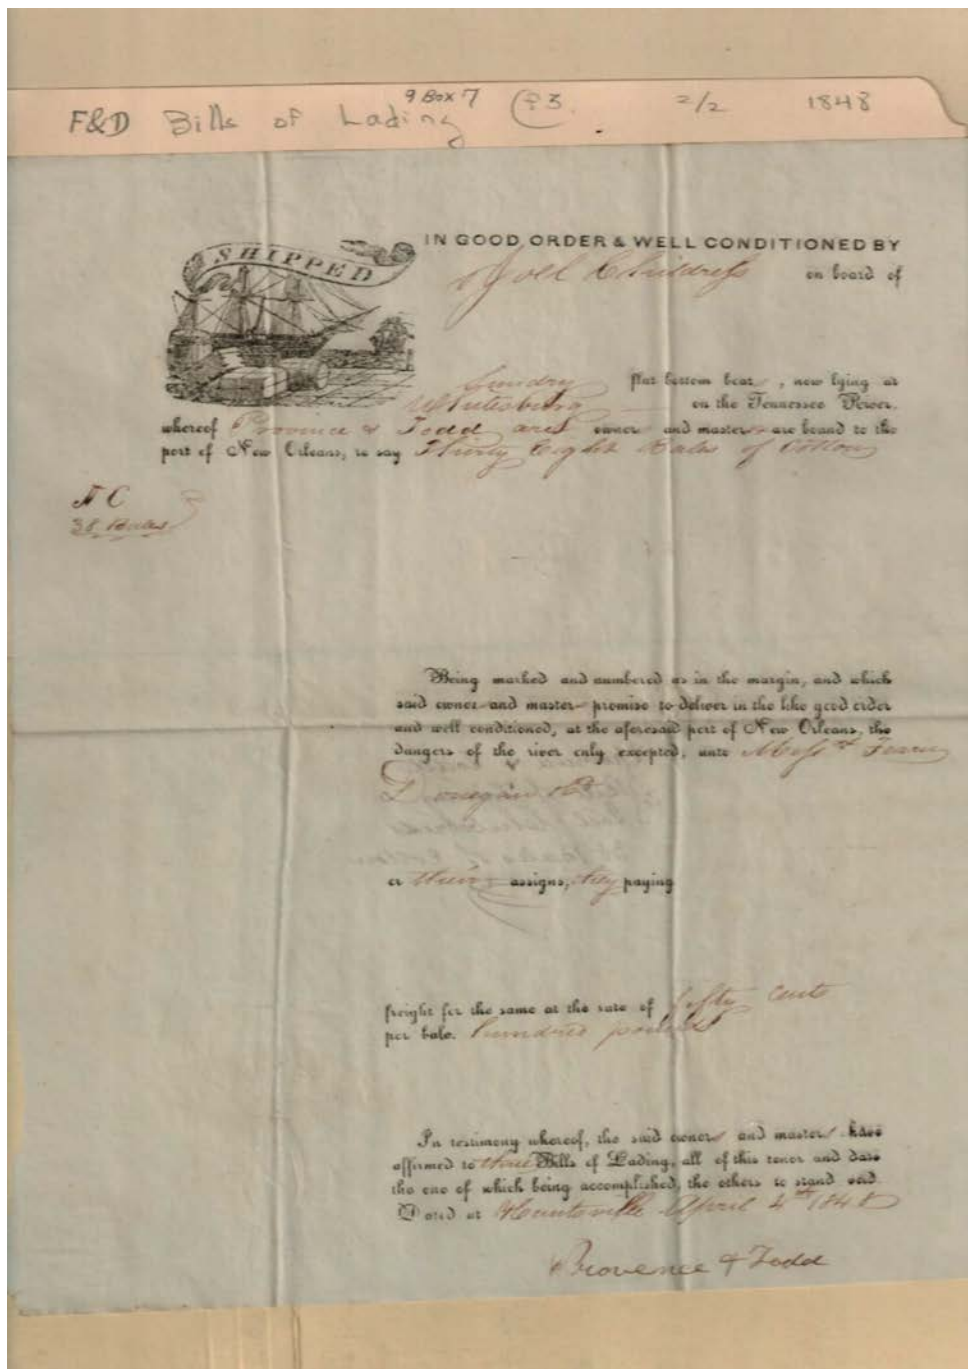 9 Box 7
F&D Bills of Lading 3. 2/2 1848
SHIPPED
IN GOOD ORDER & WELL CONDITIONED BY
Childress on board of
Sundry flat bottom boat, now lying at
Whitesburg on the Tennessee River.
whereof Provence & Todd are owner and master are bound to the
port of New Orleans, to say Thirty Eight Bales of Cotton
C
38 Bales
Being marked and numbered as in the margin, and which
said owner and master promise to deliver in the like good order
and well conditioned, at the aforesaid port of New Orleans, the
dangers of the river only excepted, unto Messrs Fearn
Donegan & Co
or their assigns, they paying
freight for the same at the rate of fifty cents
per bale. hundred pounds
In testimony whereof, the said owners and masters have
affirmed to three Bills of Lading, all of this tenor and date
the one of which being accomplished, the others to stand void.
Dated at Huntsville April 4th 1848
Provence & Todd